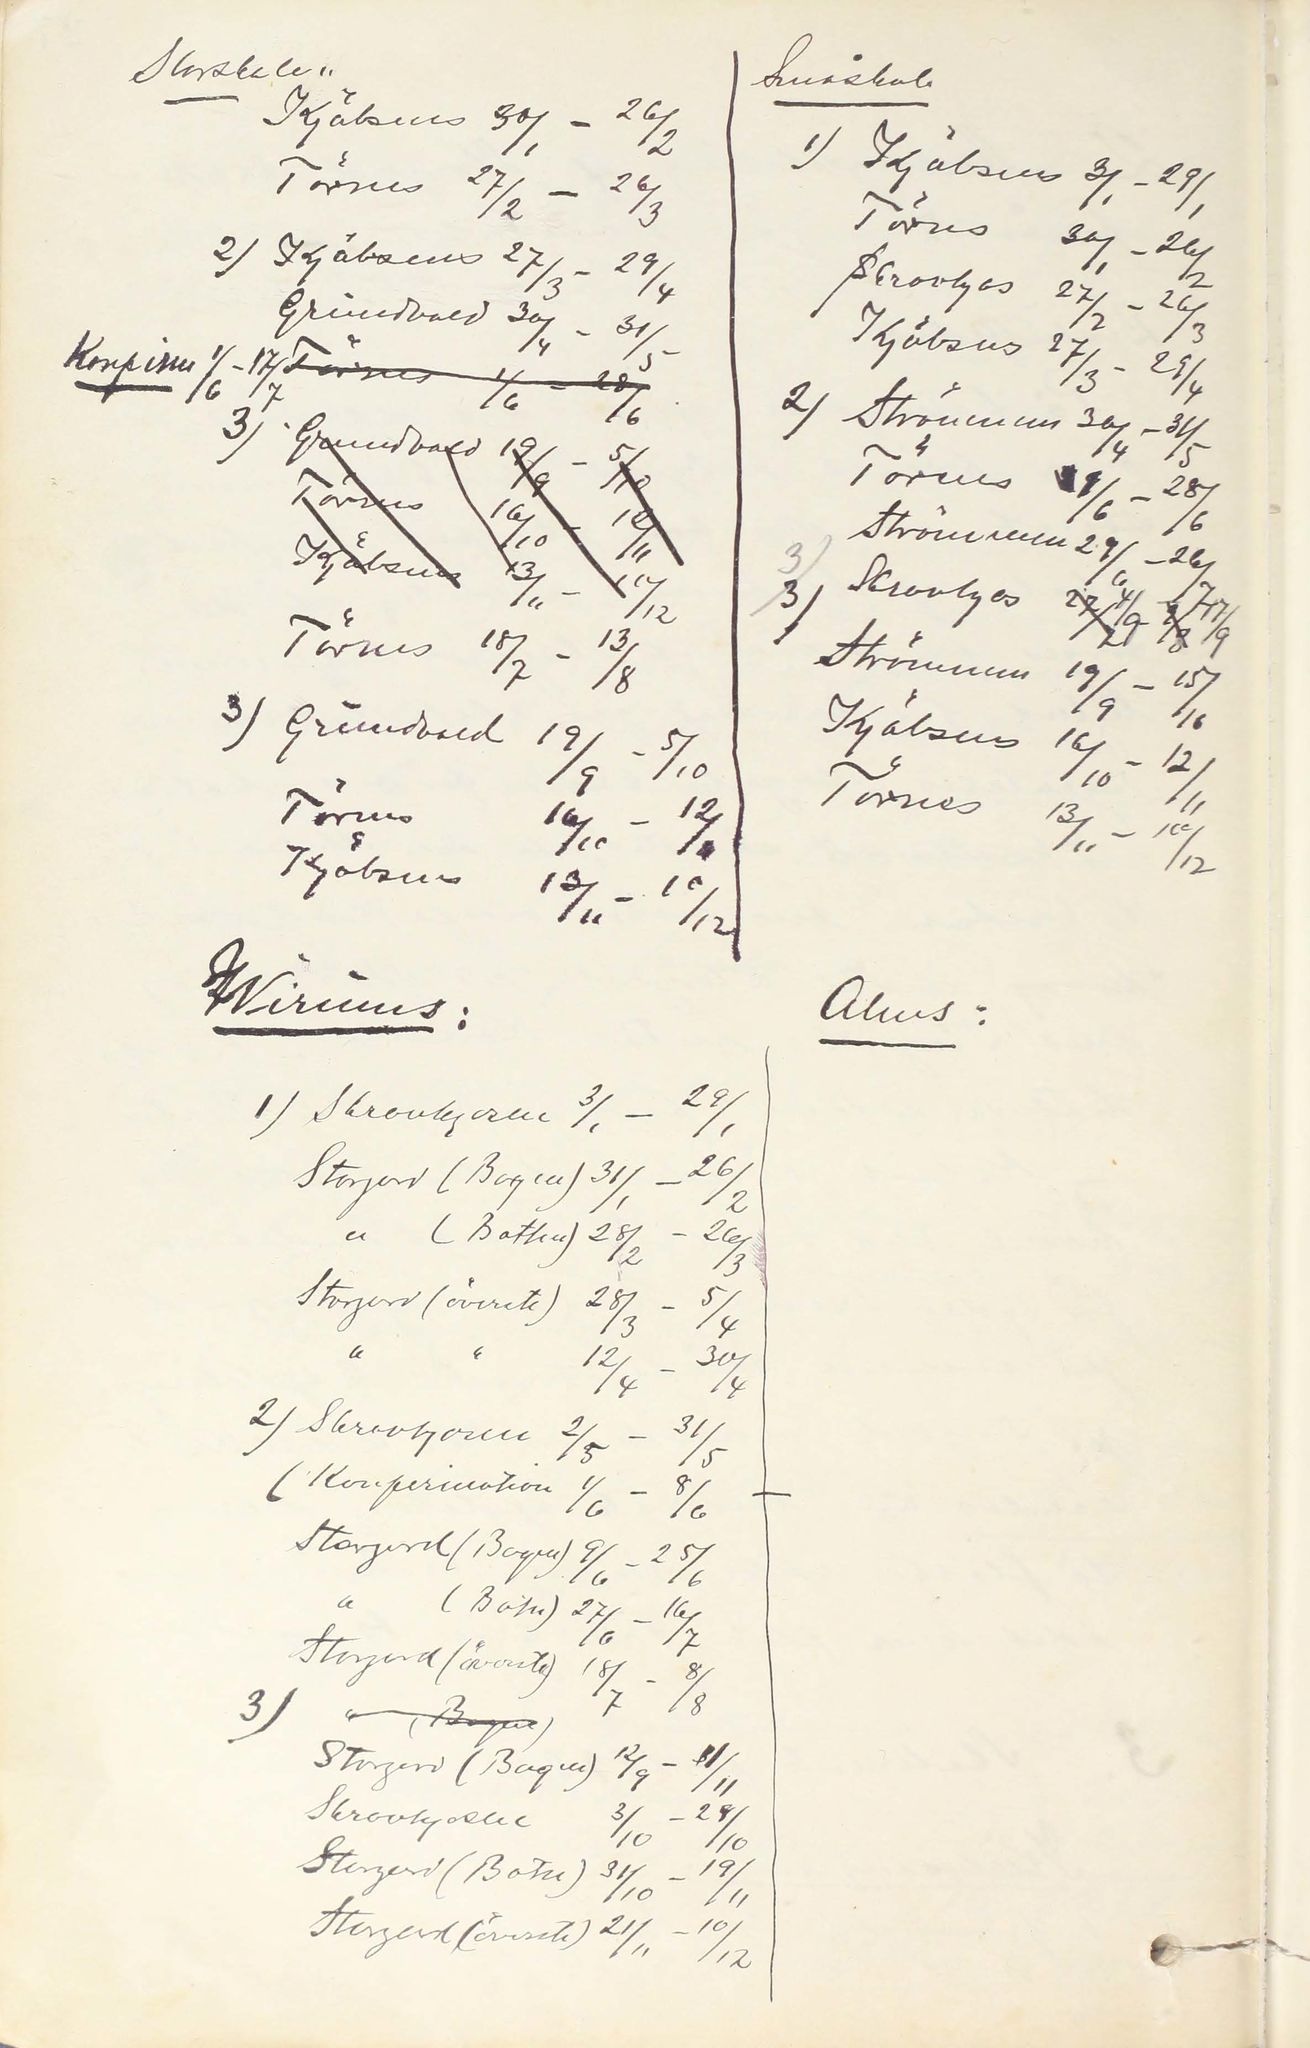 Storskole
Kjöbsnes 30/1 - 26/2
Törnes 27/2 - 26/3
2) Kjöbsnes 27/3 - 29/4
Grundvald 30/4 - 31/5
Konfirm 1/6 - 17/7 Törnes 1/6 - 28/6
3) Grundvald 19/9 - 5/10
Törnes 16/10 - 12/11
Kjöbsnes 13/11 - 10/12
Törnes 18/7 - 13/8
3) Grundvald 19/9 - 5/10
Törnes 16/10 - 12/11
Kjöbsnes 13/11 - 10/12
Småskole
1) Kjöbsnes 3/1 - 29/1
Törnes 30/1 - 26/2
Skrovkjos 27/2 - 26/3
Kjöbsnes 27/3 - 29/4
2) Strömmen 30/4 - 31/5
Törnes 1/6 - 28/6
Strömmen 29/6 - 26/7
3)
3) Skrovkjos 4/9 - 17/9
Strömmen 19/9 - 15/10
Kjöbsnes 16/10 - 12/11
Törnes 13/11 - 10/12
:
1) Skrovkjosen 3/1 - 29/1
Storjord (Bogen) 31/1 - 26/2
" (Botten) 28/2 - 26/3
Storjord (överste) 28/3 - 5/4
" " 12/4 - 30/4
2) Skrovkjosen 2/5 - 31/5
( Konfirmation 1/6 - 8/6
Storjord (Bogen) 9/6 - 25/6
" (Botn) 27/6 - 16/7
Storjord (överste) 18/7 - 8/8
3) " (Bogen)
Storjord (Bogen) 12/9 - 11
Skrovkjosen 3/10 - 29/10
Storjord (Botn) 31/10 - 19/11
Storjord (överste) 21/11 - 10/12